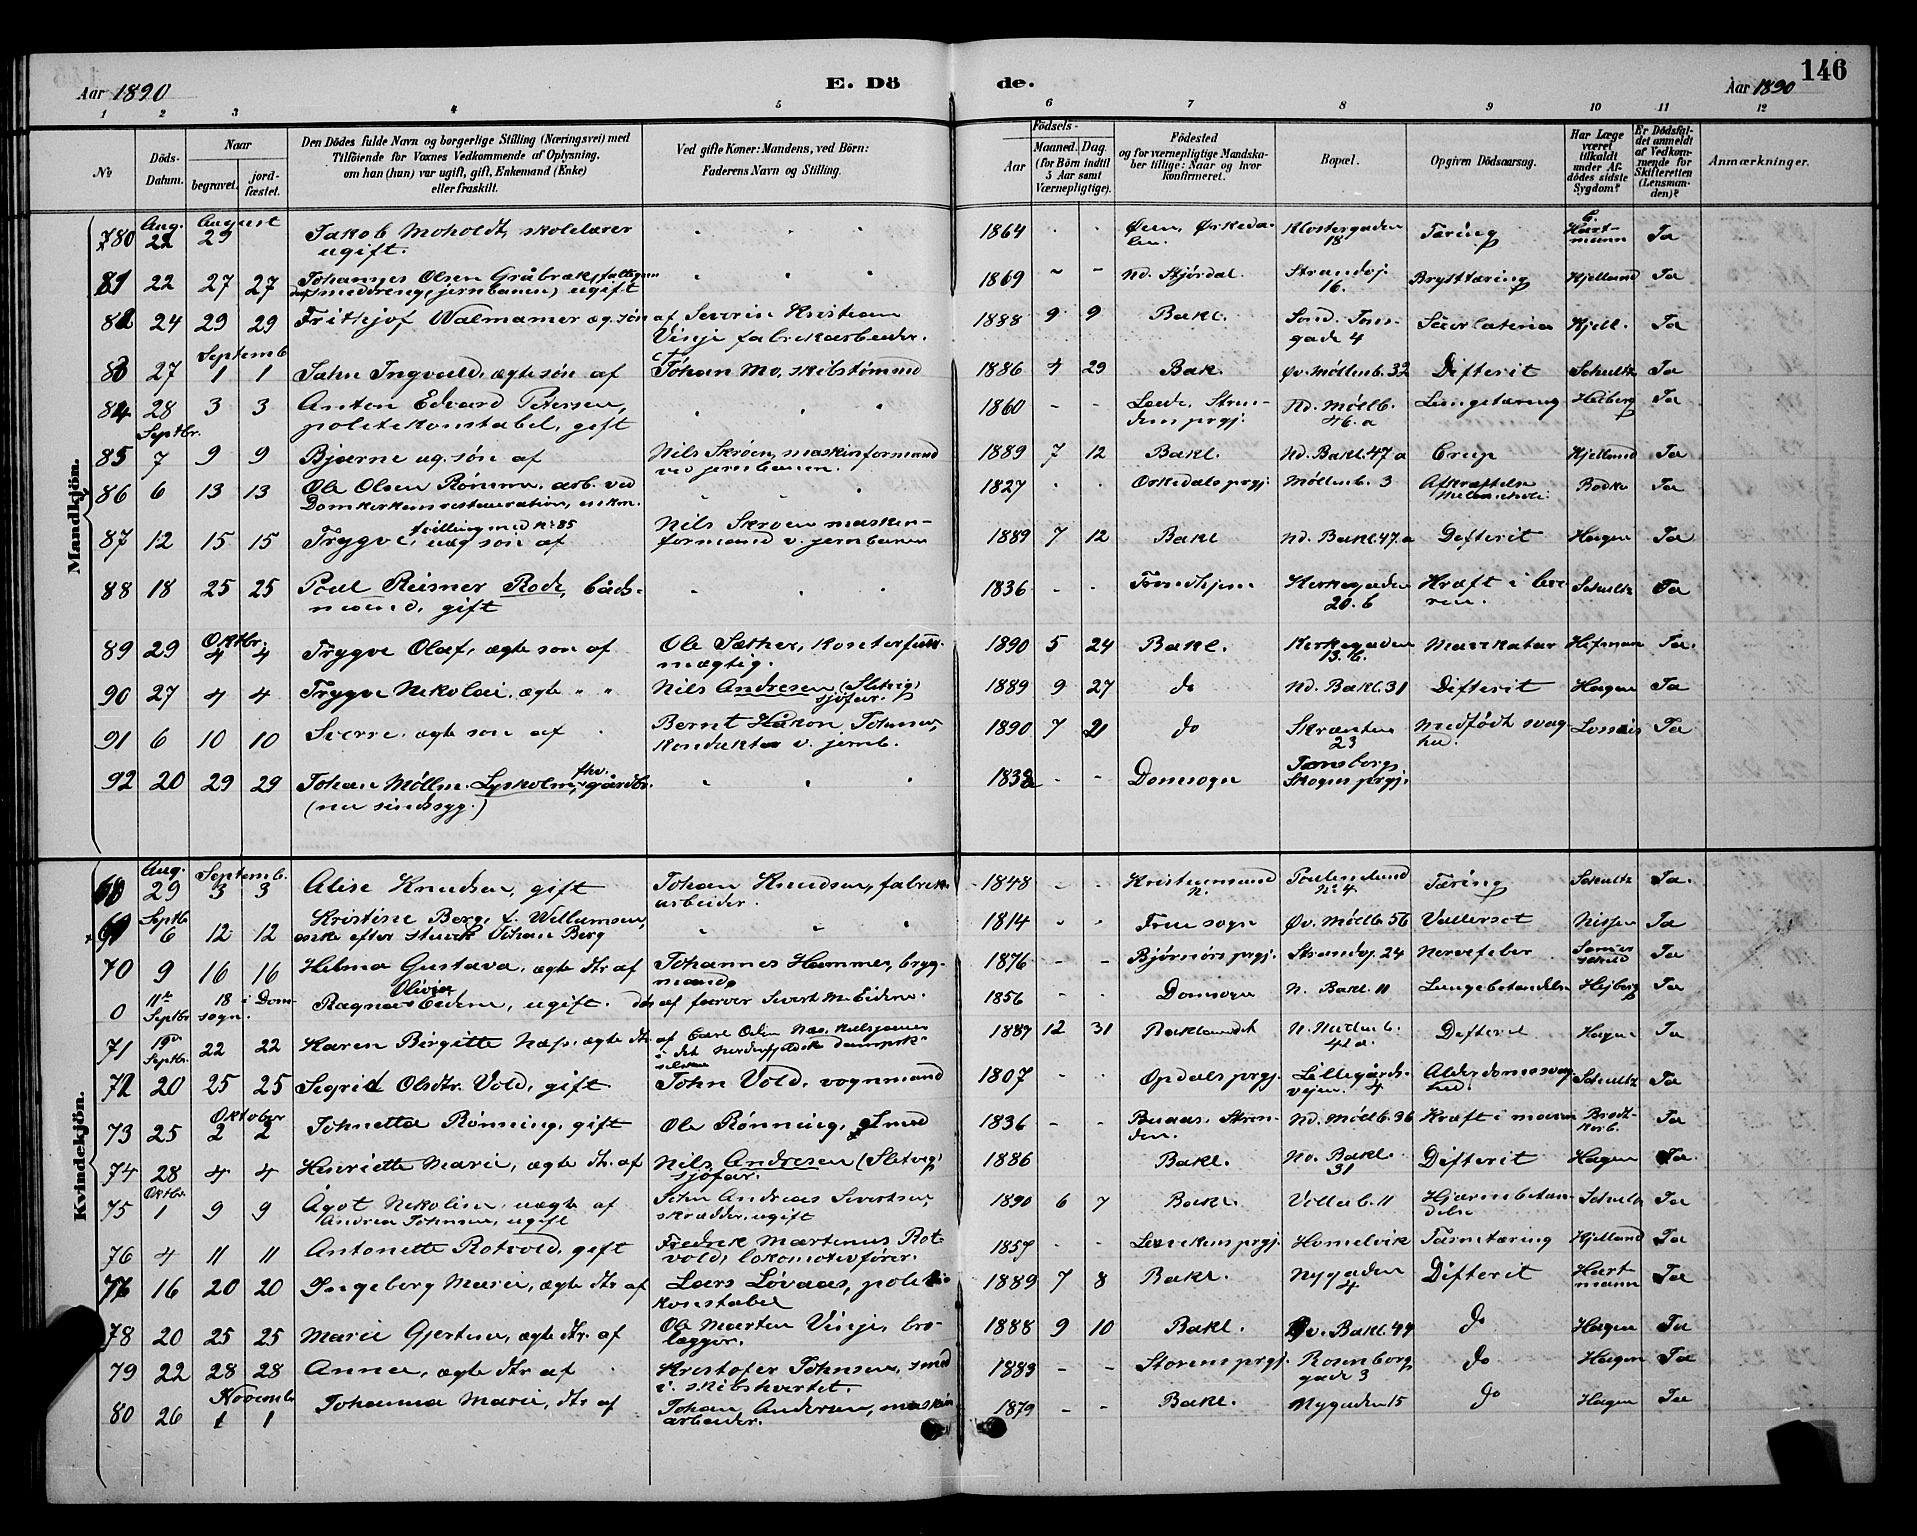 Aar 1890
E. Döde.
Aar 1890
146
1 2 3 4 5 6 7 8 9 10 11 12
No
Döds-Datum.
Naar
begravet.
jordfæstet.
Den Dödes fulde Navn og borgerlige Stilling (Næringsvei) med
Tilföiende for Voxnes Vedkommende af Oplysning,
om han (hun) var ugift, gift, Enkemand (Enke)
eller fraskilt.
Ved gifte Koner: Mandens, ved Börn:
Faderens Navn og Stilling.
Födsels-
Aar
Maaned. Dag.
(for Börn indtil
5 Aar samt
Værnepligtige).
Födested
og for værnepligtige Mandskaber
tillige: Naar og hvor
konfirmeret.
Bopæl.
Opgiven Dödsaarsag.
Har Læge
været
tilkaldt
under Afdödes
sidste
Sygdom?
Er Dödsfaldet
anmeldt
af Vedkommende
for
Skifteretten
(Lensmanden)?
Anmærkninger.
Mandkjön.
Aug. August
780 22 29 Jakob Moholdt, skolelærer ugift. 1864 Klostergaden 18 Tæring Hartmann Ja
81 22 27 27 Johannes Olsen jernbanen, ugift 1869 Nd. Stjördal. Strandvj. 16. Brysttæring Hjelland Ja
82 24 29 29 Fritkjof Walmamer æg. søn af Severin Kristian Vinje fabrikarbeider. 1888 9 9 Bakl. gade 4 Hjell. Ja
Septemb.
83 27 1 1 Jahn Ingvald, ægte søn af Johan Mo, skibstømmd 1886 4 29 Bak. Øv. Møllenb. 32 Difterit Schultz Ja
84 28 3 3 Anton Edvard Petersen, politikonstabel, gift 1860 - - Nd. Møllb. 46. a Lungetæring Heiberg Ja
Septbr.
85 7 9 9 Bjarne æg. søn af Nils Skrøen, maskinformand ved jernbanen. 1889 7 12 Bakl. Nd. Bakl. 47 a Crup Hjelland Ja
86 6 13 13 Ole Olsen Rømme, arb. ved Domkirkens restauration, enkm. 1827 Orkedals prgj. Møllenb. 3 Afkræftelse Ja
87 12 15 15 Trygve, tvilling med No 85 æg søn af Nils Skrøen maskinformand v. jernbanen 1889 7 12 Bakl Nd. Bakl. 47. a Difterit Hagen Ja
88 18 25 25 Poul Reismer Rode, bådsmand, gift 1836 - - Trondhjem Kirkegaden 20. b Kræft i Schultz Ja
Oktbr.
89 29 4 4 Trygve Olaf, ægte søn af Ole Sæther, kontorfuldmægtig. 1890 5 24 Bakl. Kirkegaden 13. b. Ja.
90 27 4 4 Trygve Nikolai, ægte " " Nils Andresen (Sletvig) sjøfar. 1889 9 27 do Nd. Bakl. 31 Difterit Hagen Ja
91 6 10 10 Sverre, ægte søn af Bernt Håkon Johnsen, konduktør v. jernb. 1890 7 21 do Skrænten 23 Medfødt svaghed. Ja
92 20 29 29 Johan Møller Lysholm, fhv. gårdbr. (nu sindssyg.) 1838 - - Domsogn Skogns prgj.
Kvindekjön.
Aug. Septemb.
68 29 3 3 Alise Knudsen, gift Johan Knudsen, fabrikarbeider. 1848 - - Kristiansund N. No 4 Tæring Schultz Ja.
Septb.
69 6 12 12 Kristine Berg, f. Willumsen, enke efter Johan Berg 1814 - - Frue sogn Øv. Møllb. 56 Nissen Ja
70 9 16 16 Helma Gustava, ægte dtr af Johannes Hammer, brygmand 1876 - - Bjørnørs prgj. Strandvj. 24 Nervefeber Ja
0 11te Septbr. 18 i Domsogn. Ragna Olivia Eidem, ugift. dtr af farver Sivert M. Eidem. 1856 Domsogn N. Bakl. 11 Lungebetændelse Hejberg Ja
71 19de Septbr. 22 22 Karen Birgitte Næss, ægte dtr af Carl Odin Næs, i det Nordenfjeldske dampsk. selskab 1887 12 31 Baklandet 42 a. Difterit Hagen Ja
72 20 25 25 Sigrid Olsdtr. Vold, gift John Vold, vognmand 1807 - - Opdals prgj. Lillegårdsvejen 4 Alderdomssvaghed Schultz Ja
Oktober
73 25 2 2 Johnetta Rønning, gift Ole Rønning, Smed 1836 - - Nd. Møllb. 36 Kræft i maven Ja
74 28 4 4 Henriette Marie, ægte dtr. af Nils Andresen (Sletvig) sjøfar. 1886 Bakl. Nd. Bakl. 31 Difterit Hagen Ja.
Oktbr.
75 1 9 9 Ågot Nikoline, uægte af Andrea Johnsen, ugift John Andreas Sivertsen, skrædder, ugift 1890 6 7 Bakl. Vollab. 11 Hjærnebetændelse Schultz Ja
76 4 11 11 Antonette Rotvold, gift Fredrik Martinus Rotvold, lokomotivfører. 1857 - - Hommelvik Tarmtæring Hjelland Ja
77 16 20 20 Ingeborg Marie, ægte dtr af Lars Løvaas, politikonstabel 1889 7 8 Bakl. Nygaden 4 Difterit Hartmann Ja
78 20 25 25 Marie Gjertine, ægte dtr. af Ole Morten Vinje, brolægger. 1888 9 10 Bakl. Øv. Bakl. 44 do Hagen Ja
79 22 28 28 Anna, ægte dtr af Kristofer Johnsen, smed i skibsverftet. 1883 - - Størens prgj. Rosenborg gade 3 do Hagen Ja
Novemb.
80 26 1 1 Johanna Marie, dtr af Johan Andersen, arbeider. 1879 - - Bakl. Nygaden 15 do Hagen Ja